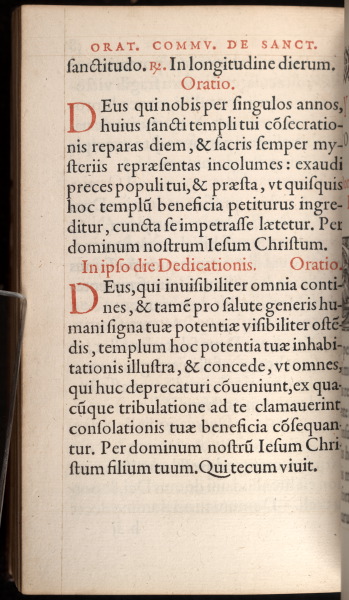 ORAT. COMMV. DE SANCT.
ſanctitudo. ℟. In longitudine dierum.
Oratio.
DEus qui nobis per ſingulos annos,
huius ſancti templi tui cōſecratio-
nis reparas diem, & ſacris ſemper my-
ſteriis repræſentas incolumes: exaudi
preces populi tui, & præſta, vt quiſquis
hoc templū beneficia petiturus ingre-
ditur, cuncta ſe impetraſſe lætetur. Per
dominum noſtrum Ieſum Chriſtum.
In ipſo die Dedicationis. Oratio.
DEus, qui inuiſibiliter omnia conti-
nes, & tamē pro ſalute generis hu-
mani ſigna tuæ potentiæ viſibiliter oſtē-
dis, templum hoc potentia tuæ inhabi-
tationis illuſtra, & concede, vt omnes,
qui huc deprecaturi cōueniunt, ex qua-
cūque tribulatione ad te clamauerint
conſolationis tuæ beneficia cōſequan-
tur. Per dominum noſtrū Ieſum Chri
ſtum filium tuum. Qui tecum viuit.